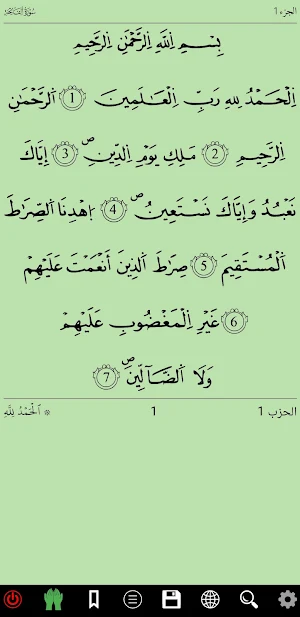 الجزء 1 سورة الفاتحة
بِسْمِ اِ۬للَّهِ اِ۬لرَّحْمَٰنِ اِ۬لرَّحِيمِ
اِ۬لْحَمْدُ لِلهِ رَبِّ اِ۬لْعَٰلَمِينَ 1 اَ۬لرَّحْمَٰنِ
اِ۬لرَّحِيمِ 2 مَلِكِ يَوْمِ اِ۬لدِّينِ ص 3 إِيَّاكَ
نَعْبُدُ وَإِيَّاكَ نَسْتَعِينُ ص 4 اُ۪هْدِنَا اَ۬لصِّرَٰطَ
اَ۬لْمُسْتَقِيمَ 5 صِرَٰطَ اَ۬لذِينَ أَنْعَمْتَ عَلَيْهِمْ
6 غَيْرِ اِ۬لْمَغْضُوبِ عَلَيْهِمْ
وَلَا اَ۬لضَّآلِّينَ ص 7
الحزب 1 1 * اَ۬لْحَمْدُ لِلَّهِ